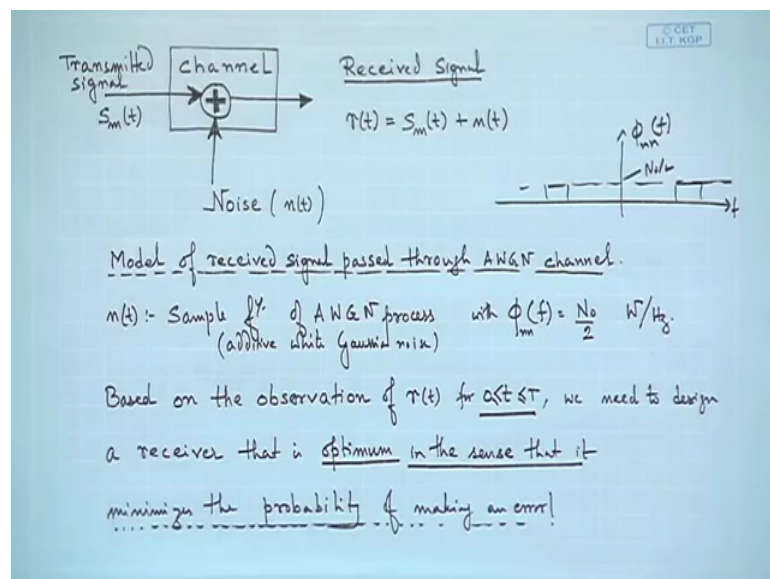 © CET
I.I.T. KGP
Transmitted
signal
Sm(t)
Channel
+
Received Signal
r(t) = Sm(t) + n(t)
Noise (n(t))
Φnn(f)
No/2
f
Model of received signal passed through AWGN channel.
n(t) :- Sample fn. of AWGN process with Φnn(f) = No/2 W/Hz.
(additive white Gaussian noise)
Based on the observation of r(t) for 0≤t≤T, we need to design
a receiver that is optimum in the sense that it
minimizes the probability of making an error!